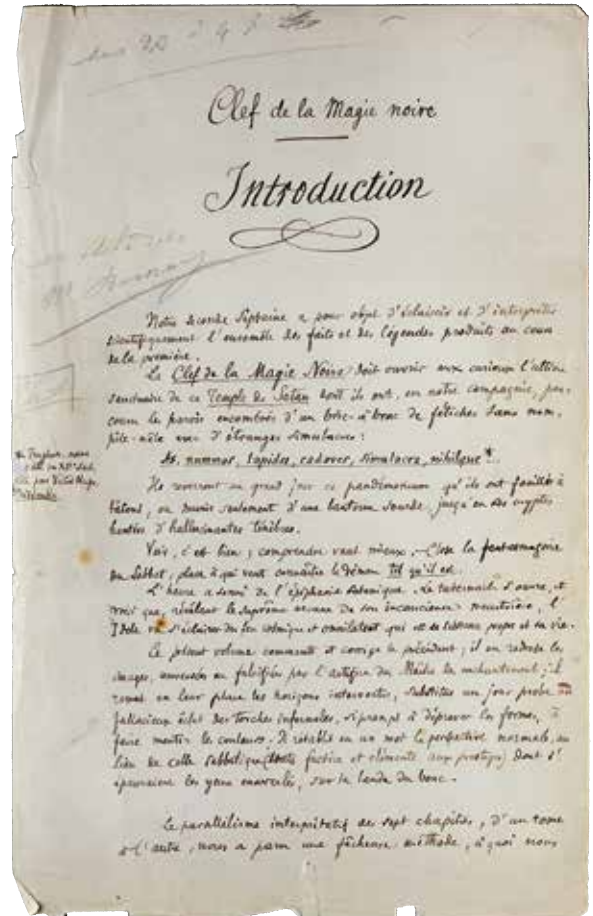 Clef de la Magie noire
Introduction
Notre seconde Septaine a pour objet d'éclaircir et d'interpréter
scientifiquement l'ensemble des faits et des légendes produits au cours
de la première.
La Clef de la Magie Noire doit ouvrir aux curieux l'ultime
sanctuaire de ce Temple de Satan dont ils ont, en notre compagnie, par-
couru les parvis encombrés d'un bric-à-brac de fétiches sans nom,
pêle-mêle avec d'étranges simulacres :
As, nummos, lapides, cadaver, simulacra, nihilque
Ils reverront au grand jour ce pandémonium qu'ils ont fouillé à
tâtons, ou munis seulement d'une lanterne sourde, jusqu'en ses cryptes
hantées d'hallucinantes ténèbres.
Voir, c'est bien ; comprendre vaut mieux. la fantasmagorie
du Sabbat, place à qui veut connaître le démon tel qu'il est.
L'heure a sonné de l'épiphanie satanique. Le tabernacle s'ouvre, et
voici que, révélant le suprême arcane de son inconscience l'
Idole va s'éclairer du feu cosmique et qui est sa substance propre et sa vie.
Ce présent volume commente et corrige le précédent ; il en redresse les
images, inversées ou falsifiées par l'artifice du Maître du enchantement ; il
remet en leur place les horizons intervertis, substitue un jour probe au
fallacieux éclat des torches infernales, si prompt à dépraver les formes, à
faire mentir les couleurs. Il rétablit en un mot la perspective normale, au
lieu de celle sabbatique (toute factice et clémente aux prestiges) dont s'
les yeux ensorcelés, sur la lande du bouc.
Le parallélisme interprétatif des sept chapitres, d'un tome
à l'autre, nous a paru une fâcheuse méthode, à quoi nous